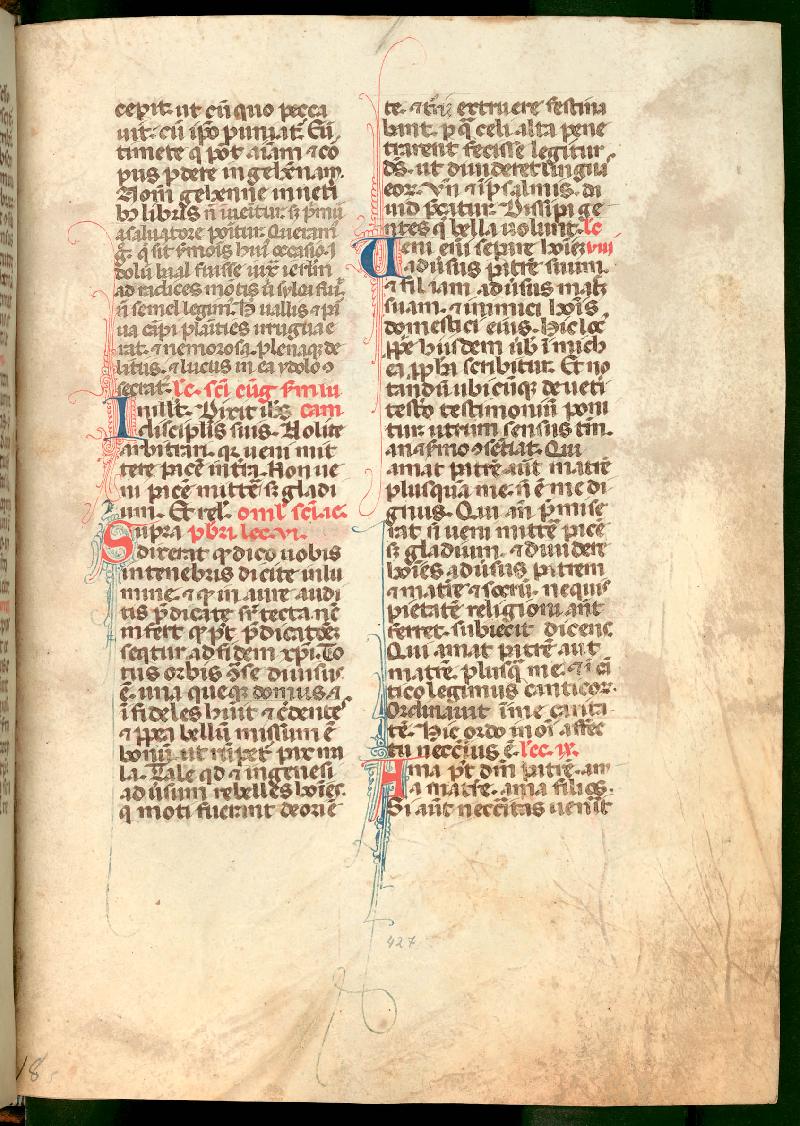 cepit: ut cū quo pecca
uit: cū ip̄o puniat̄. Eū
timete q̄ pōt aīam ⁊ co
pus ꝑdere in gehēnam.
Nom̄ gehenne in ueti
bꝫ libris n̄ īueītur. sꝫ p̄mū
a saluatore poītur. Queram
g̊. q̄ sit ẜmōis huī occasio. I
dolū baal fuisse iux̄ ierlm̄
ad radices mōtis
n̄ semel legim̄. H̄ uallis ⁊ p̄
ua cāpi planities irrigua e
rat. ⁊ nemorosa. plenaqꝫ de
litiis. ⁊ lucus in ea ydolo ꝯ
secrat̄. lc. sc̄i euḡ ẜm
In ill̄ t̄. Dixit ih̄s
discipl̄is suis. Nolite
arbitrari. qꝛ ueni mit
tere pacē in t̄rā. Non ue
ni pacē mittē sꝫ gladi
um. Et rel̄. oml̄.
Supra pb̄ri. lec. vi.
dixerat qđ dico uobis
in tenebris dicite in lu
mine. ⁊ qđ in aure audi
tis p̄dicate sr̄ tecta. nc̄
infert qđ pt̄ p̄dicatōꝫ
seqtur ad fidem xp̄i. To
tus orbis ꝯ̄ se diuisus
ē. una queqꝫ domus ⁊
īfideles hūit ⁊ c̄dente
⁊ ꝓp̄ea bellū missum ē
bonū ut rūpet̄ pax ma
la. Tale qđ ⁊ in genesi
aduersum rebelles hoīes.
q̄ moti fuerant de oriē
te. ⁊ extruere festina
bant. ꝑ q̄ celi alta pene
trarent fecisse legitur
dš. ut diuideret lingua
eoꝝ. Vn̄ ⁊ ī psalmis. da
uid p̄catur. Dissipa ge
ntes q̄ bella uolunt. lc
Ueni eni sepāre hoīeꝫ viii
aduersus patrē suum.
⁊ fil̄iam aduersus mat̄
suam. ⁊ inimici hoīs
domestici eius. Hic loc̄
ꝓpe hisdem ūb̄ ī mich
ea ꝓph̄a scribitur. Et no
tandū ubicūqꝫ de ueti
testo testimoniū poni
tur utrum sensus tm̄.
an ⁊ ẜmo ꝯsētiat. Qui
amat patrē aut matrē
plusquā me. n̄ ē me di
gnus. Qui an̄ p̄mise
rat n̄ ueni mittē pacē
sꝫ gladium. ⁊ diuidere
hoīes aduersus patrem
⁊ matrē ⁊ socrū. nequis
pietatē religioni ant̄
ferret. subiecit dicens.
Qui amat patrē aut
matrē. plusq̄ me. ⁊ ī cā
tico legimus canticoꝝ.
Ordinauit ī me carita
tē. Hic ordo in oī affec
tu neccīus ē. lec. ix.
Ama pt̄ dm̄ patrē. am
a matrē. ama filios.
Si aut̄ neccītas uenit
427